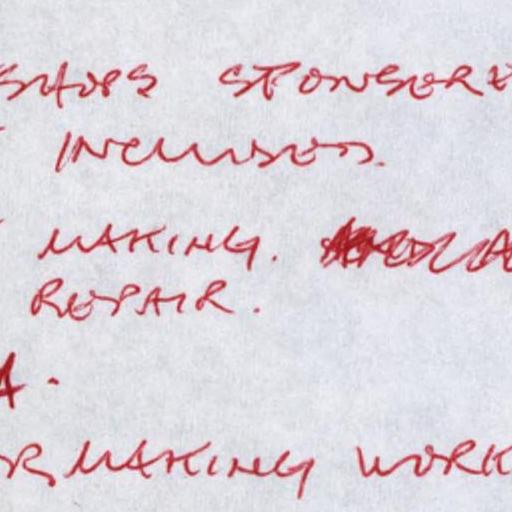 SHOPS SPONSERE
INCLUDED.
MAKING.
REPAIR.
A.
RMAKING WORK